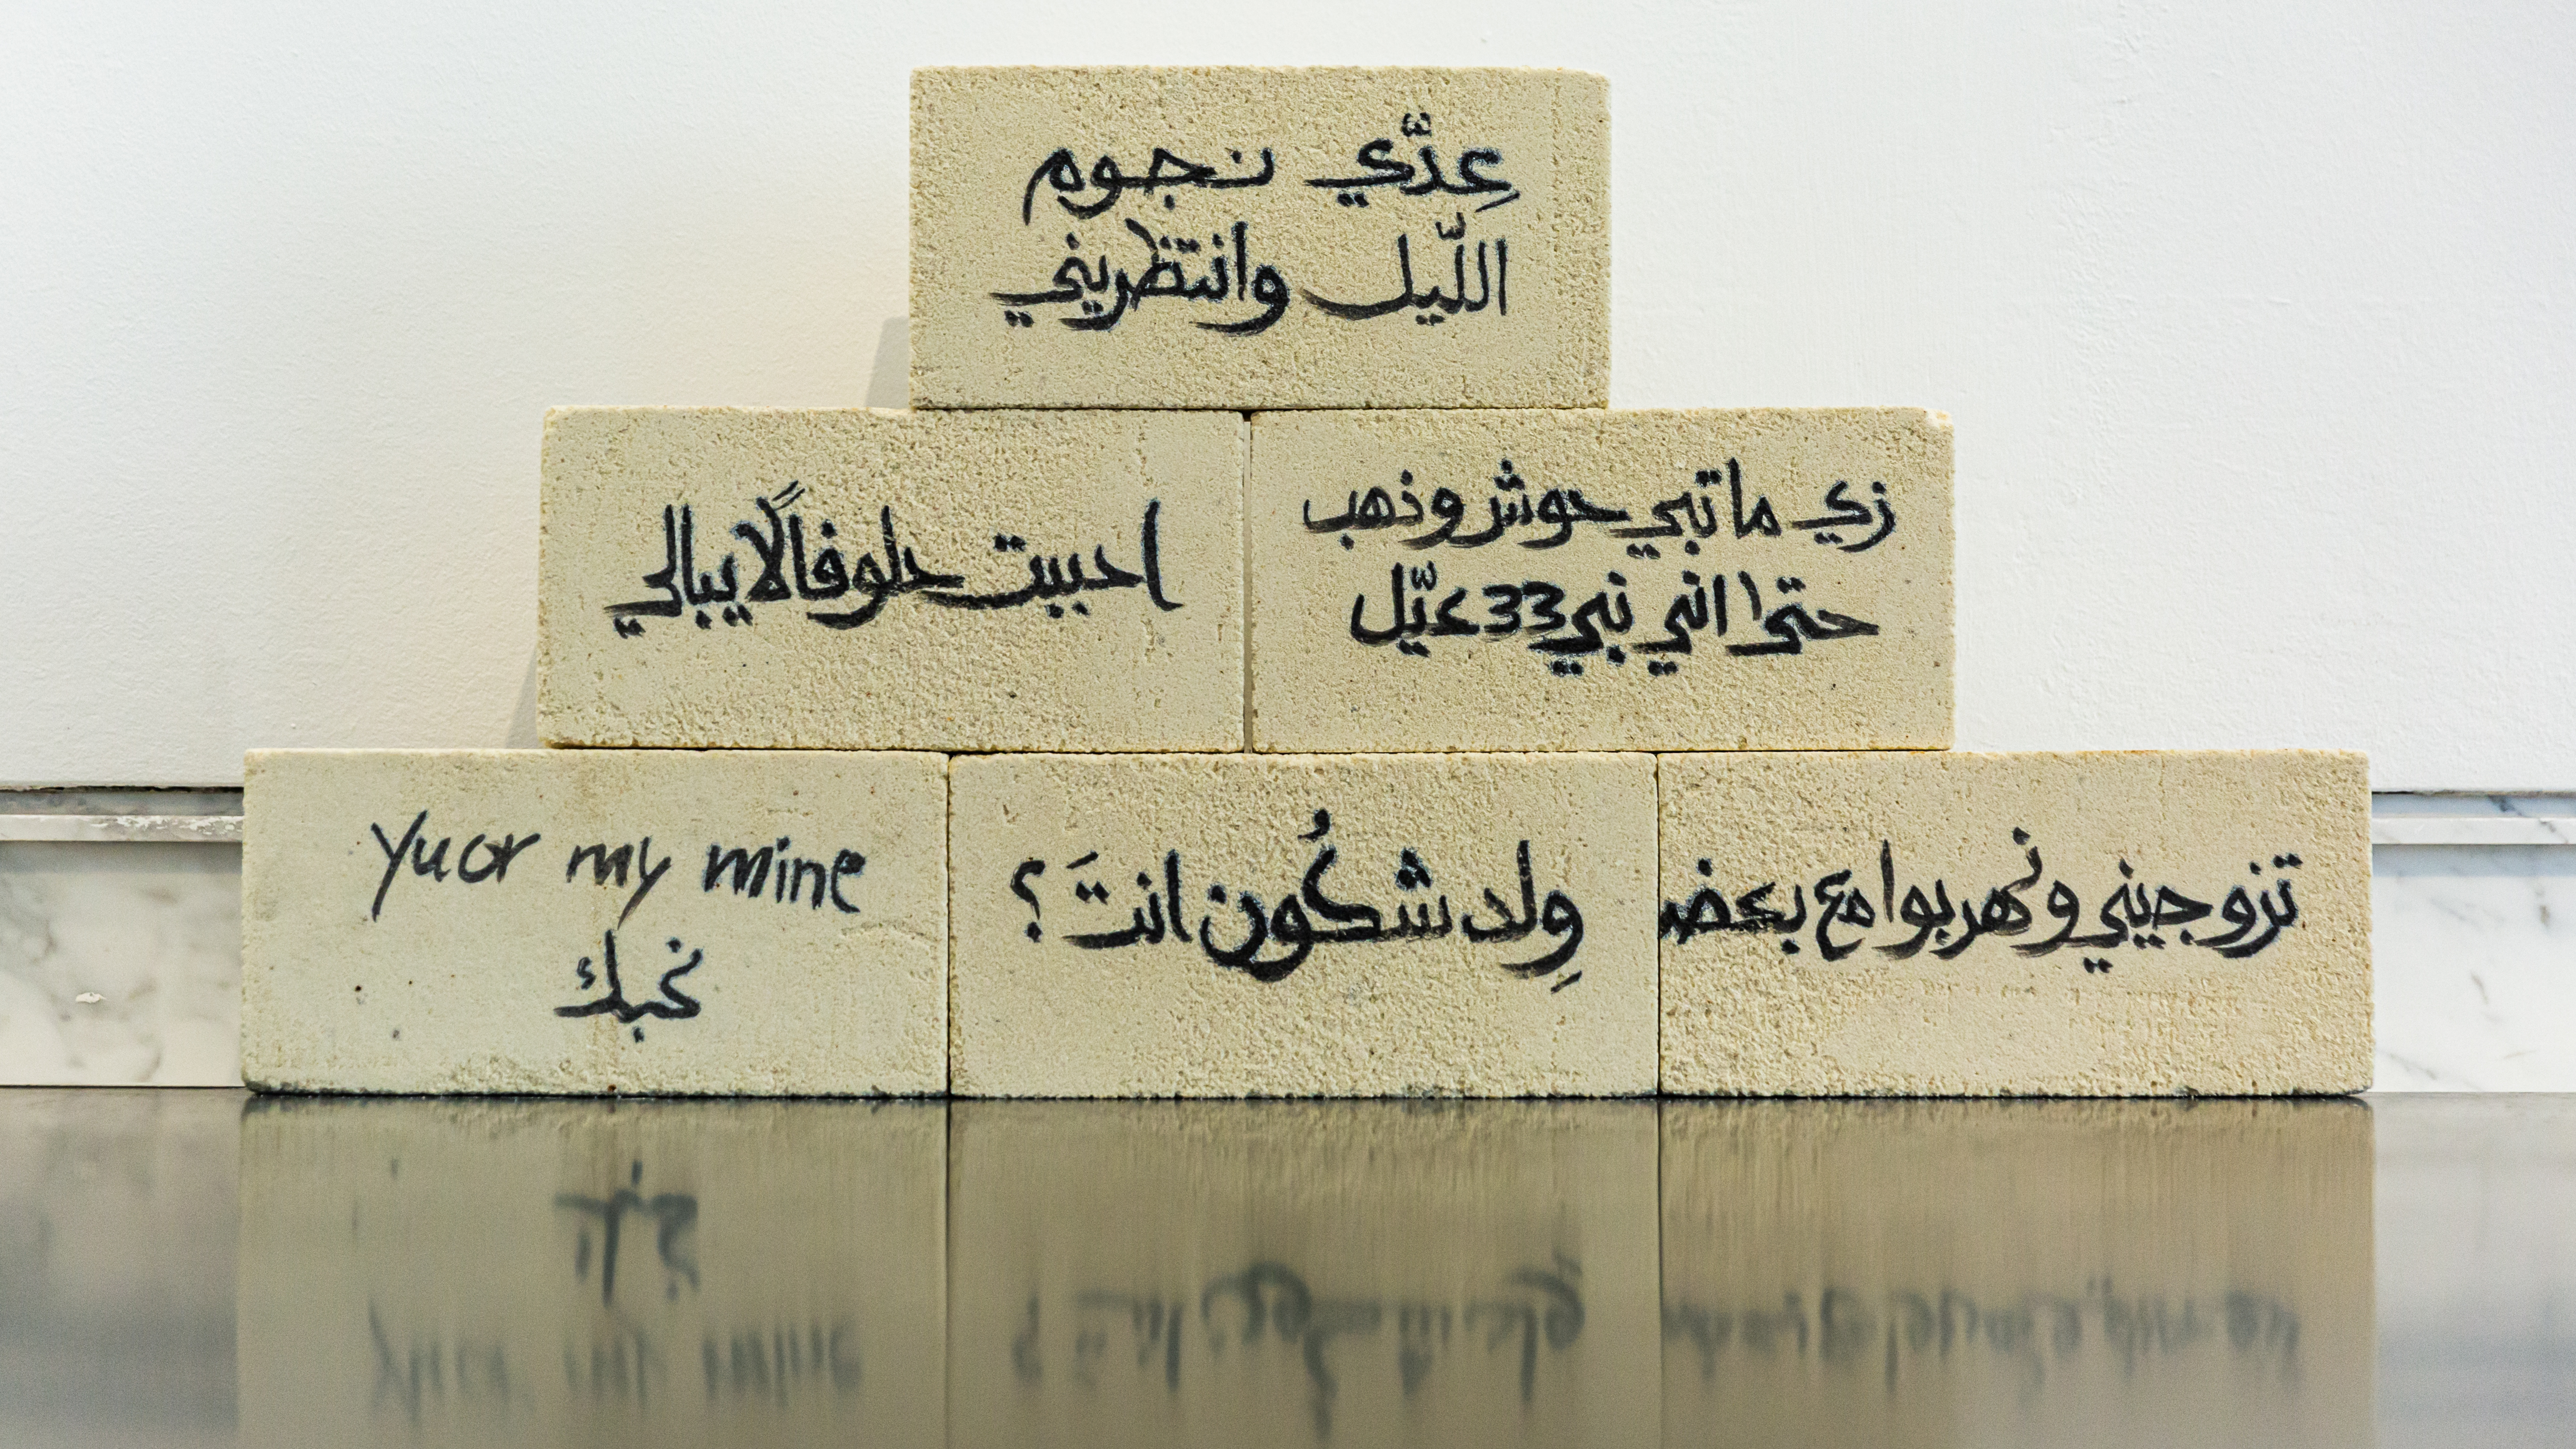 عِدّي نجوم
اللّيل وانتظريني
احببت حلوفاً لا يبالي
زي ماتبي حوش وذهب
حتى اني نبي 33 عيّل
Yuor my mine
نحبك
وِلد شكُون انتَ ؟
تزوجيني ونهربوا مع بعض